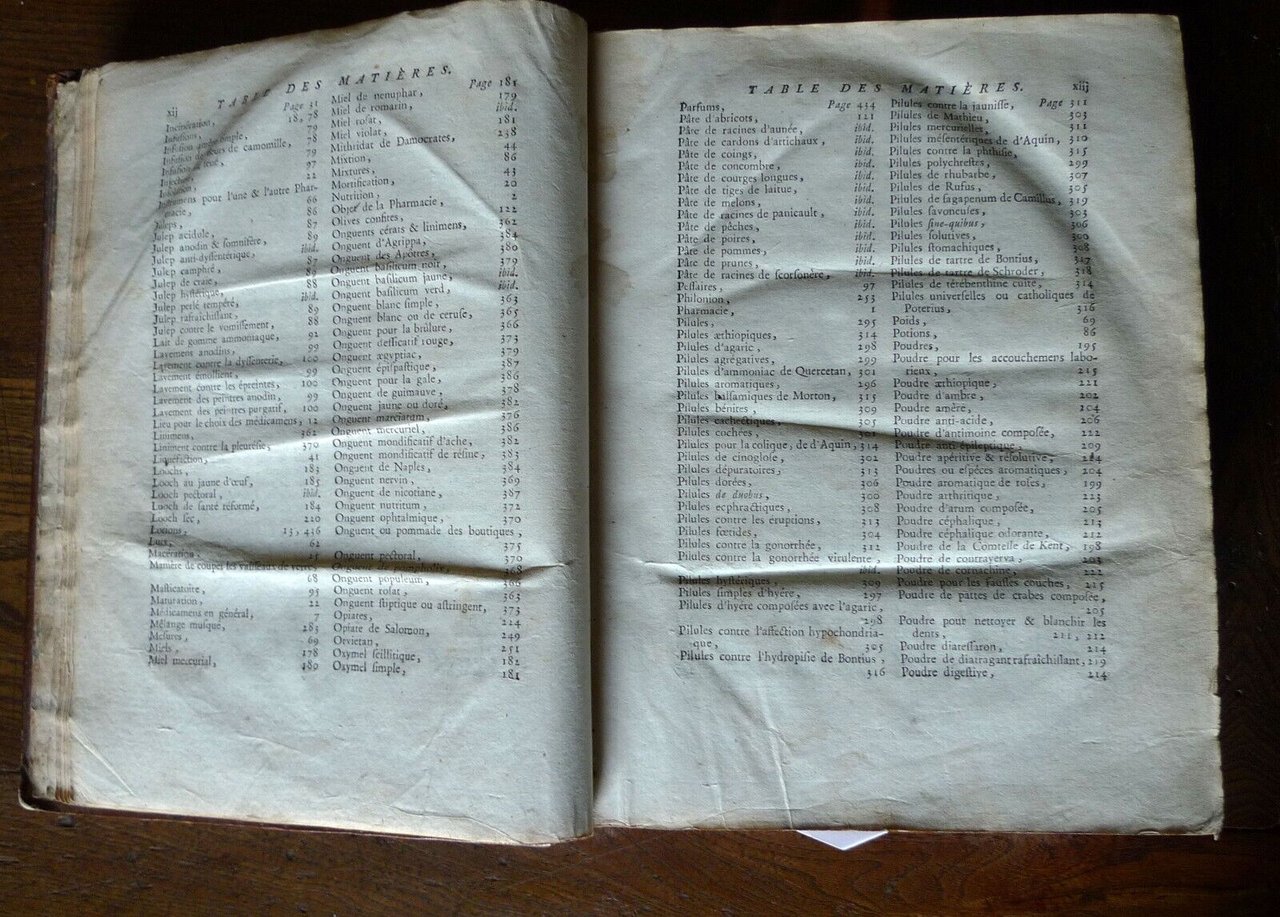 xij
TABLE DES MATIÈRES.
Incinération, Page 31
Infuſions, 18, 78
Infuſion ſimple, 79
Infuſion de fleurs de camomille, 78
Infuſion de 79
Injections, 97
Inſolation, 22
Inſtrumens pour l'une & l'autre Phar-
macie, 66
Juleps, 86
Julep acidule, 87
Julep anodin & ſomnifère, 89
Julep anti-dyſſentérique, ibid.
Julep camphré, 87
Julep de craie, 89
Julep hyſtérique, 88
Julep perlé tempéré, ibid.
Julep rafraîchiſſant, 89
Julep contre le vomiſſement, 88
Lait de gomme ammoniaque, 92
Lavemens anodins, 99
Lavement contre la dyſſenterie, 100
Lavement émollient, 99
Lavement contre les épreintes, 100
Lavement des peintres anodin, 99
Lavement des peintres purgatif, 100
Lieu pour le choix des médicamens, 12
Linimens, 362
Liniment contre la pleuréſie, 370
Liquéfaction, 41
Loochs, 183
Looch au jaune d'œuf, 185
Looch pectoral, ibid.
Looch de ſanté réformé, 184
Looch ſec, 220
Lotions, 13, 436
Luts, 62
Macération,
Manière de couper les vaiſſeaux de verre,
68
Maſticatoire, 95
Maturation, 22
Médicamens en général, 7
Mélange muſqué, 283
Meſures, 69
Miels, 178
Miel mercurial, 180
Miel de nenuphar, Page 185
Miel de romarin, 179
Miel roſat, ibid.
Miel violat, 181
Mithridat de Damocrates, 238
Mixtion, 44
Mixtures, 86
Mortification, 43
Nutrition, 20
Objet de la Pharmacie, 2
Olives confites, 122
Onguents cérats & linimens, 362
Onguent d'Agrippa, 384
Onguent des Apôtres, 380
Onguent baſilicum noir, 379
Onguent baſilicum jaune, ibid.
Onguent baſilicum verd, ibid.
Onguent blanc ſimple, 363
Onguent blanc ou de ceruſe, 365
Onguent pour la brûlure, 366
Onguent deſſicatif rouge, 373
Onguent ægyptiac, 379
Onguent épiſpaſtique, 387
Onguent pour la gale, 386
Onguent de guimauve, 378
Onguent jaune ou doré, 382
Onguent martiatum, 376
Onguent mercuriel, 386
Onguent mondificatif d'ache, 382
Onguent mondificatif de réſine, 383
Onguent de Naples, 384
Onguent nervin, 369
Onguent de nicotiane, 387
Onguent nutritum, 372
Onguent ophtalmique, 370
Onguent ou pommade des boutiques,
375
Onguent pectoral, 370
Onguent de pompholix, 368
Onguent populeum, 366
Onguent roſat, 363
Onguent ſtiptique ou aſtringent, 373
Opiates, 224
Opiate de Salomon, 249
Orvietan, 251
Oxymel ſcillitique, 182
Oxymel ſimple, 181
TABLE DES MATIÈRES.
xiij
Parfums, Page 434
Pâte d'abricots, 121
Pâte de racines d'aunée, ibid.
Pâte de cardons d'artichaux, ibid.
Pâte de coings, ibid.
Pâte de concombre, ibid.
Pâte de courges longues, ibid.
Pâte de tiges de laitue, ibid.
Pâte de melons, ibid.
Pâte de racines de panicault, ibid.
Pâte de pêches, ibid.
Pâte de poires, ibid.
Pâte de pommes, ibid.
Pâte de prunes, ibid.
Pâte de racines de ſcorſonère, ibid.
Peſſaires, 97
Philonion, 253
Pharmacie, 1
Pilules, 295
Pilules æthiopiques, 314
Pilules d'agaric, 298
Pilules agrégatives, 299
Pilules d'ammoniac de Quercetan, 301
Pilules aromatiques, 296
Pilules balſamiques de Morton, 315
Pilules bénites, 309
Pilules cachectiques, 305
Pilules cochées, 301
Pilules pour la colique, de d'Aquin, 314
Pilules de cinogloſe, 302
Pilules dépuratoires, 313
Pilules dorées, 306
Pilules de duobus, 300
Pilules ecphractiques, 308
Pilules contre les éruptions, 313
Pilules fœtides, 304
Pilules contre la gonorrhée, 312
Pilules contre la gonorrhée virulente,
ibid.
Pilules hyſtériques, 309
Pilules ſimples d'hyère, 297
Pilules d'hyère compoſées avec l'agaric,
298
Pilules contre l'affection hypochondria-
que, 305
Pilules contre l'hydropiſie de Bontius,
316
Pilules contre la jauniſſe, Page 311
Pilules de Mathieu, 303
Pilules mercurielles, 311
Pilules méſentériques de d'Aquin, 310
Pilules contre la phthiſie, 315
Pilules polychreſtes, 299
Pilules de rhubarbe, 307
Pilules de Rufus, 305
Pilules de ſagapenum de Camillus, 319
Pilules ſavoneuſes, 303
Pilules ſine-quibus, 306
Pilules ſolutives, 300
Pilules ſtomachiques, 308
Pilules de tartre de Bontius, 317
Pilules de tartre de Schroder, 318
Pilules de térébenthine cuite, 314
Pilules univerſelles ou catholiques de
Poterius, 316
Poids, 69
Potions, 86
Poudres, 195
Poudre pour les accouchemens labo-
rieux, 215
Poudre æthiopique, 221
Poudre d'ambre, 202
Poudre amère, 204
Poudre anti-acide, 206
Poudre d'antimoine compoſée, 222
Poudre anti-épileptique, 209
Poudre apéritive & réſolutive, 214
Poudres ou eſpèces aromatiques, 204
Poudre aromatique de roſes, 199
Poudre arthritique, 223
Poudre d'arum compoſée, 205
Poudre céphalique, 213
Poudre céphalique odorante, 212
Poudre de la Comteſſe de Kent, 198
Poudre de contrayerva, 203
Poudre de cornachine, 222
Poudre pour les fauſſes couches, 215
Poudre de pattes de crabes compoſée,
205
Poudre pour nettoyer & blanchir les
dents, 211, 212
Poudre diateſſaron, 214
Poudre de diatragant rafraîchiſſant, 219
Poudre digeſtive, 214